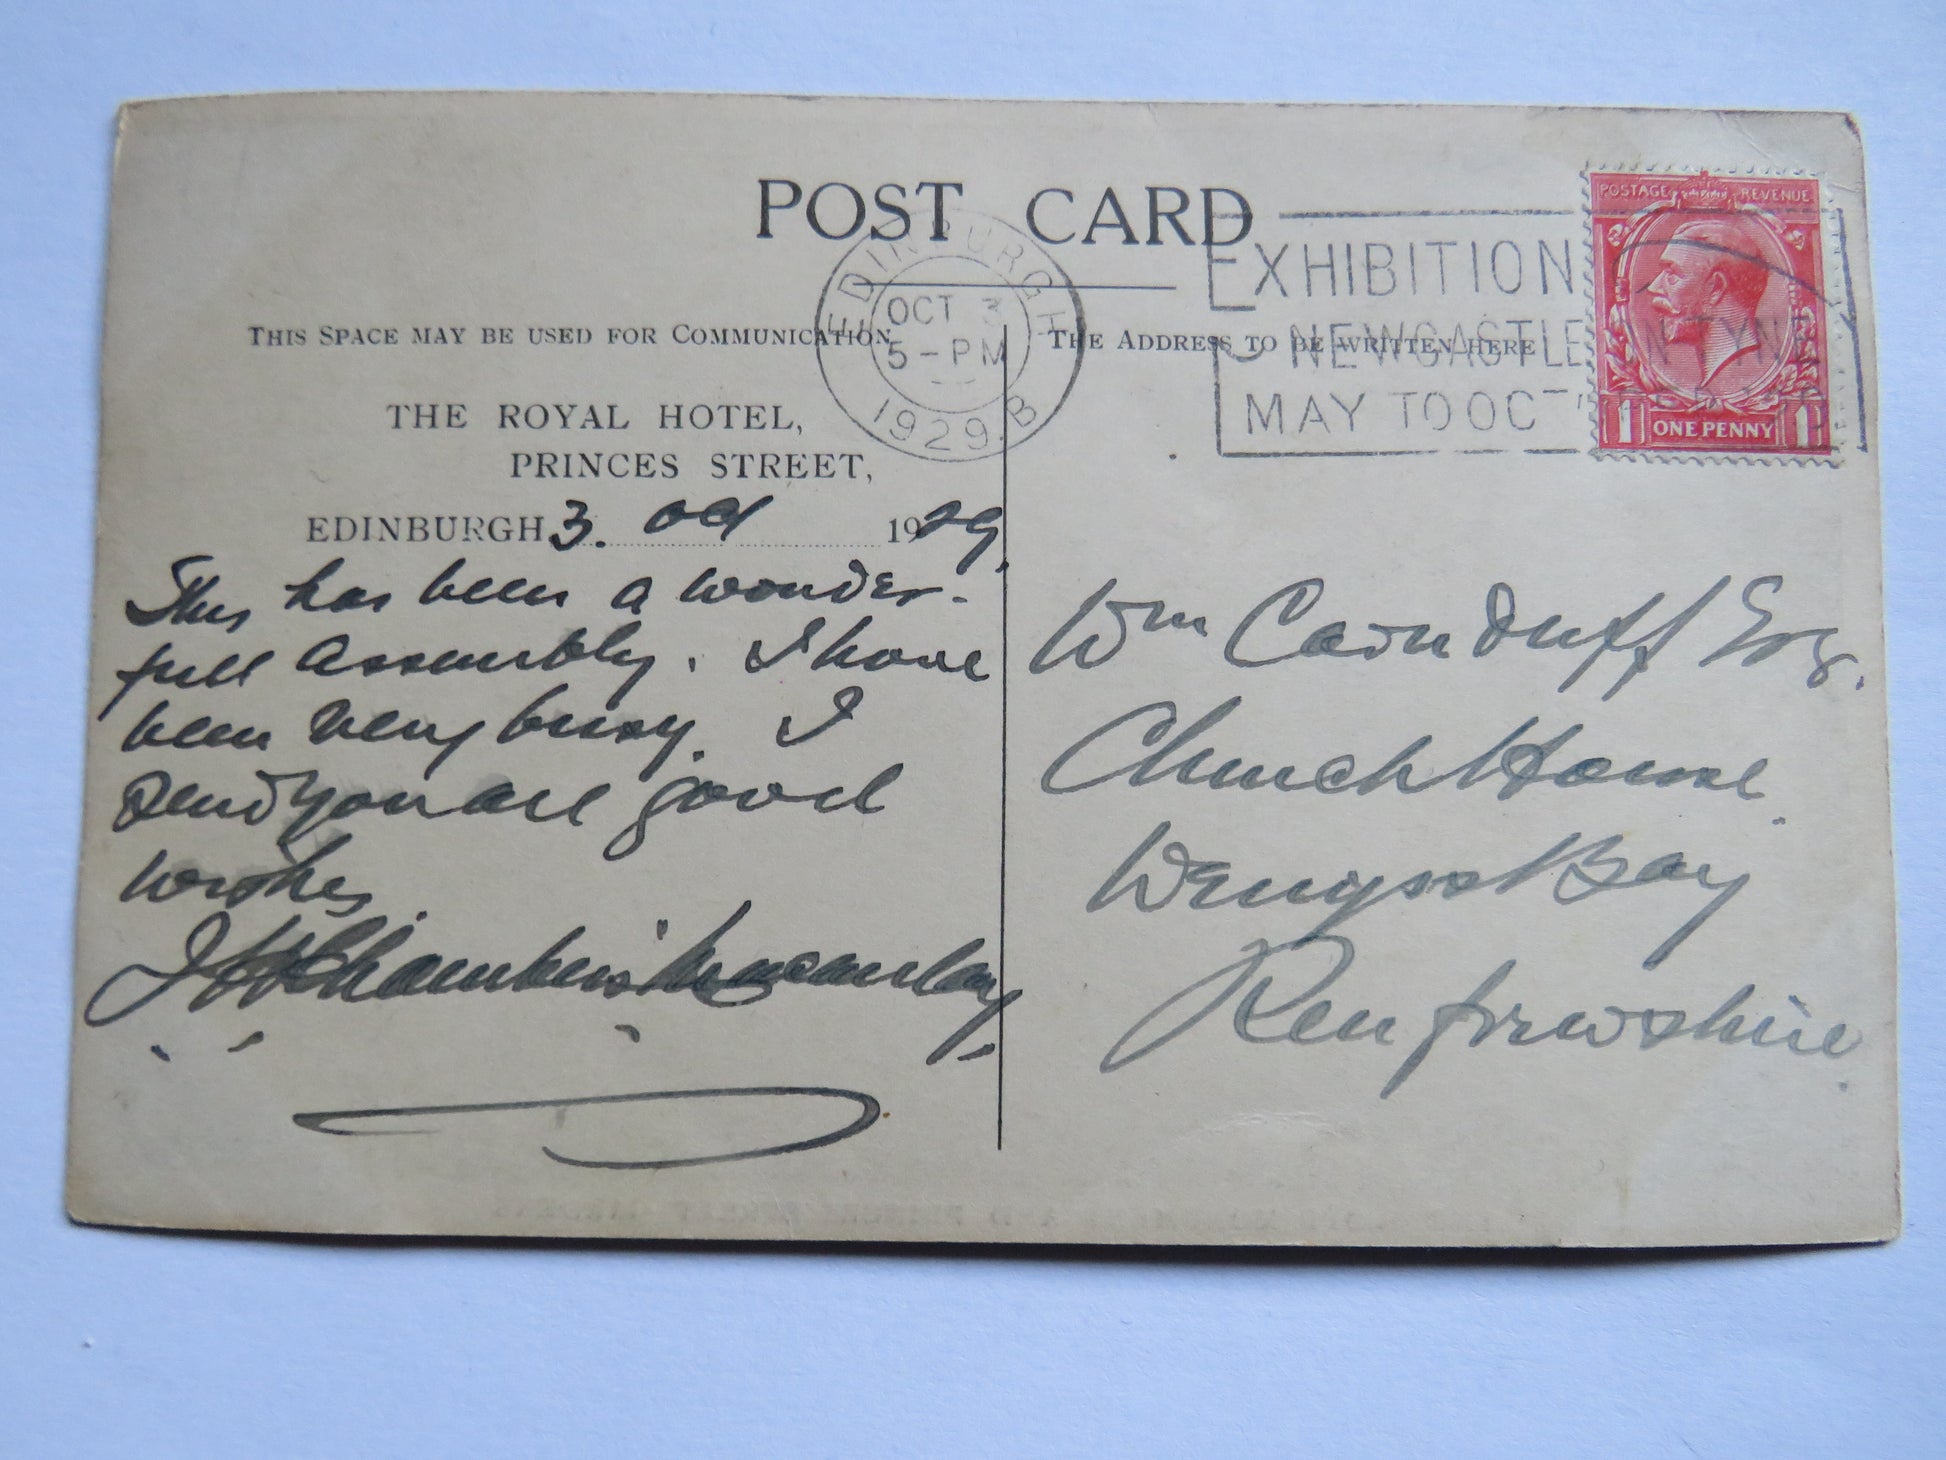 POST CARD
EDINBURGH
OCT 3
5-PM
1929.B
EXHIBITION
NEWCASTLE ON TYNE
MAY TO OCT
POSTAGE REVENUE
1 ONE PENNY 1
THIS SPACE MAY BE USED FOR COMMUNICATION
THE ROYAL HOTEL,
PRINCES STREET,
EDINBURGH 3. Oct 1929.
This has been a wonder-
full assembly. I have
been very busy. I
send you all good
wishes.
J Chambers Macaulay
THE ADDRESS TO BE WRITTEN HERE
Wm Cairnduff Esq.
Church House.
Wemyss Bay
Renfrewshire.